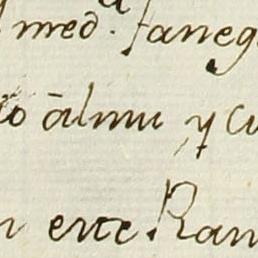 med. faneg
to ālmu y cu
n erte Ram